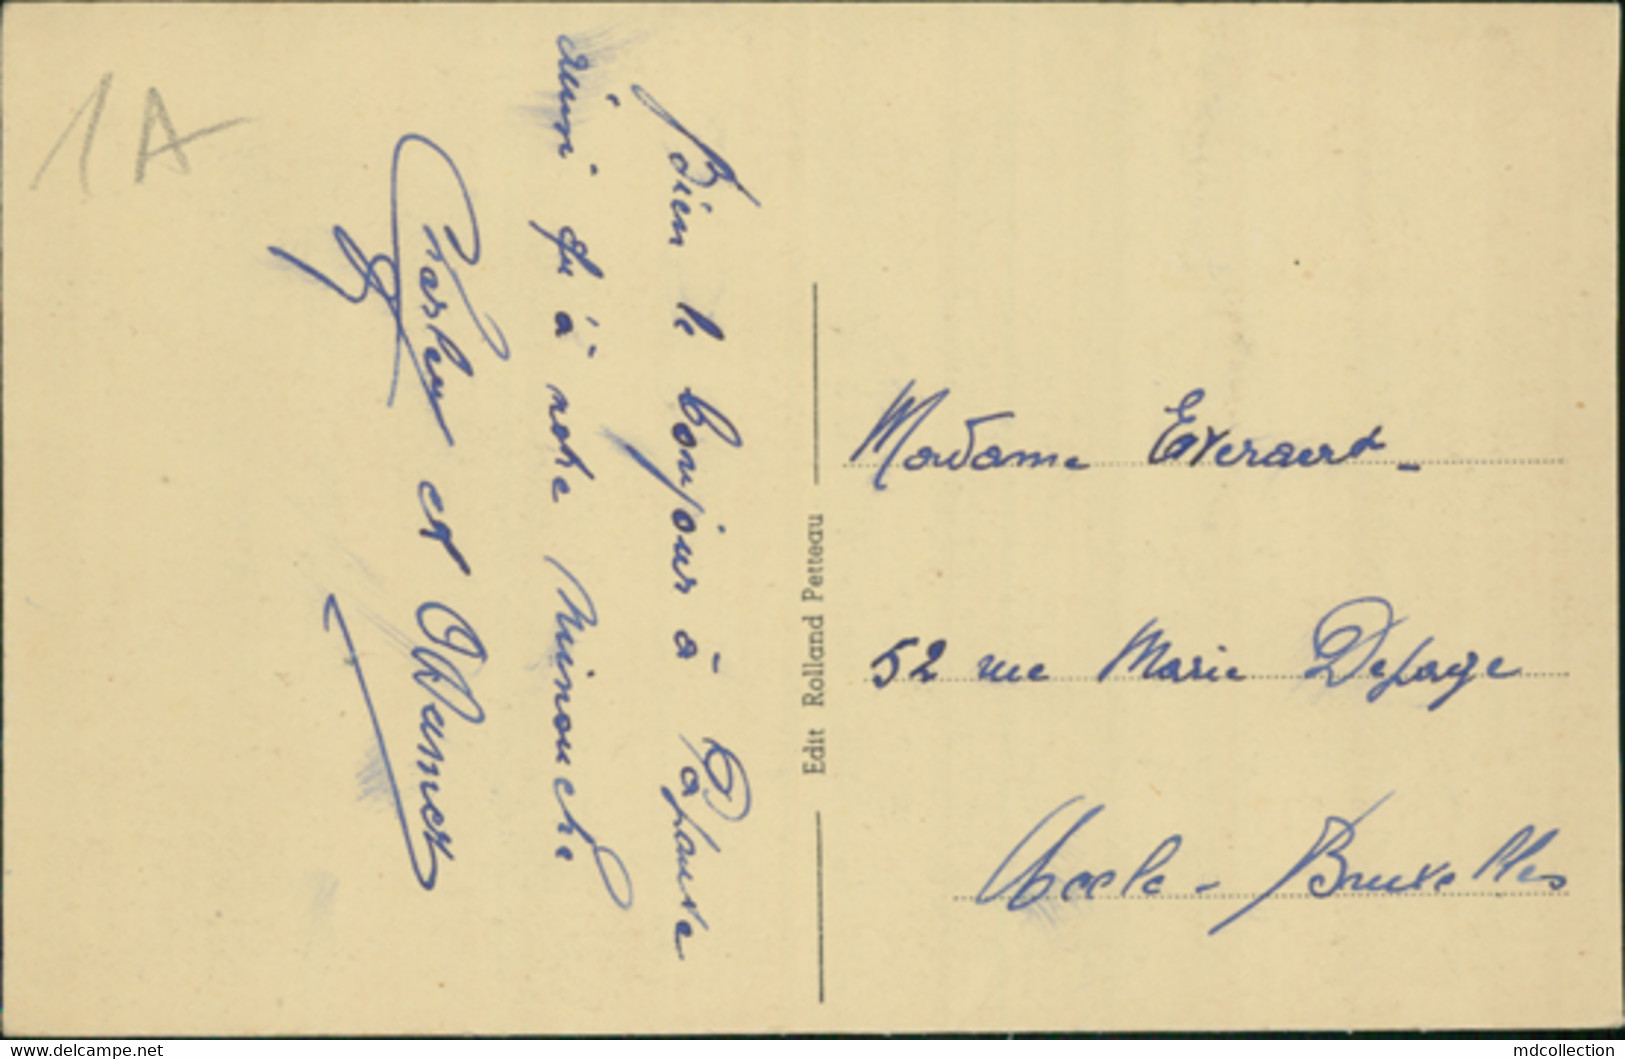 1A
Bien le bonjour à
ainsi qu'à notre Minouche
et
Edit Rolland Petteau
Madame Everaert -
52 rue Marie Depage
Uccle - Bruxelles
www.delcampe.net
mdcollection